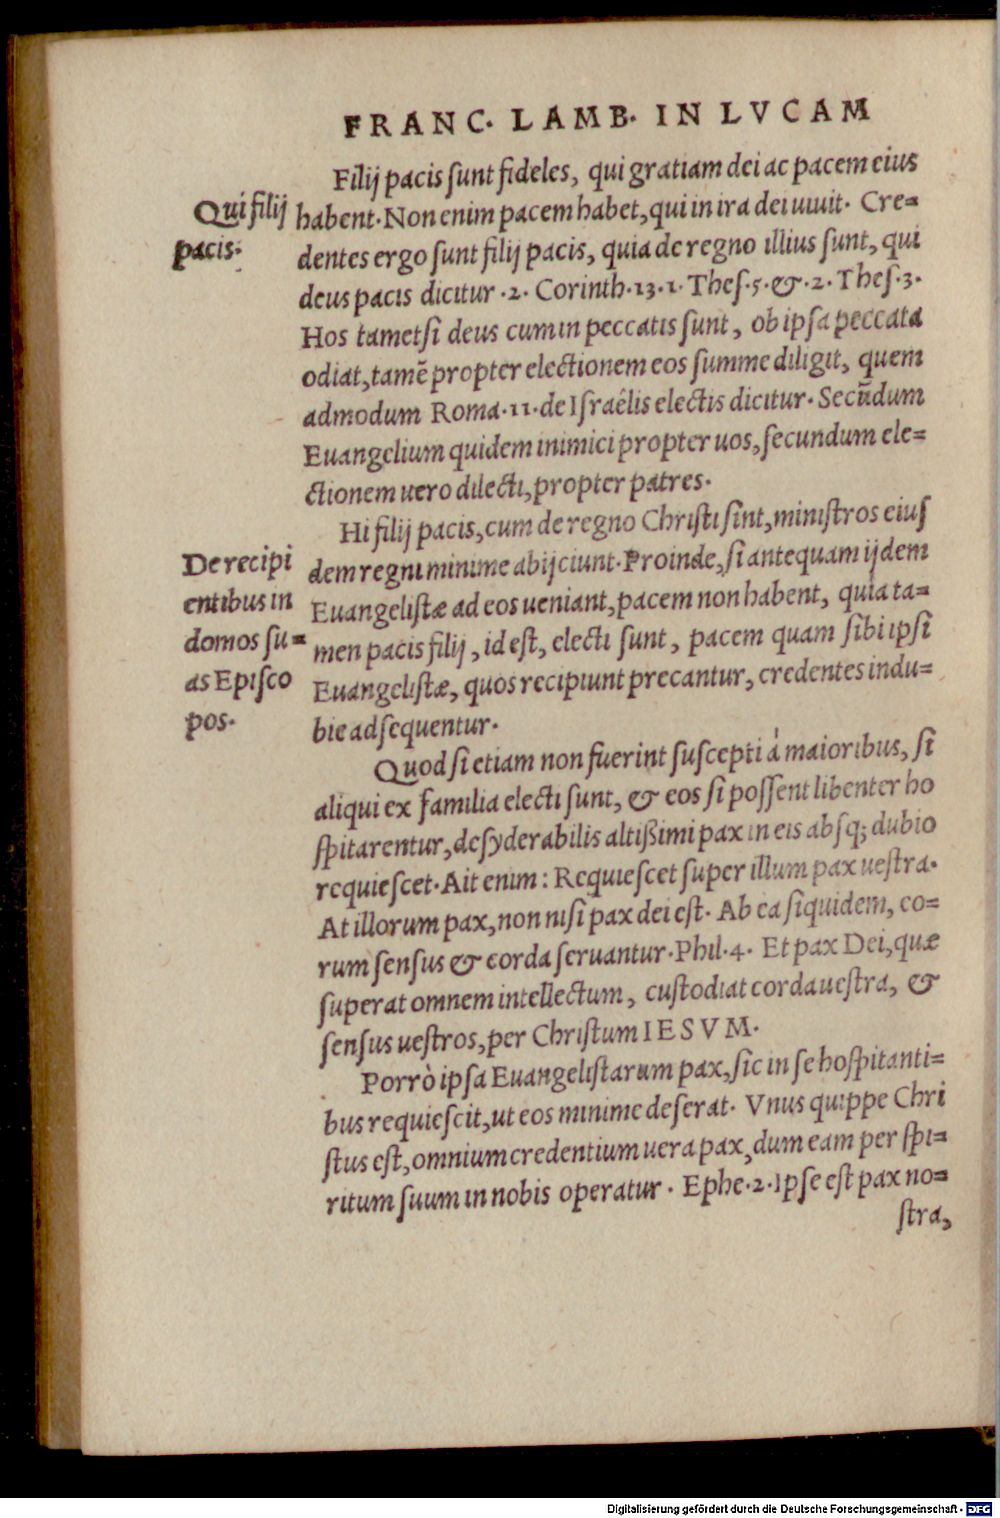 FRANC. LAMB. IN LVCAM
Filij pacis sunt fideles, qui gratiam dei ac pacem eius
Qui filij
pacis.
habent. Non enim pacem habet, qui in ira dei uiuit. Cre=
dentes ergo sunt filij pacis, quia de regno illius sunt, qui
deus pacis dicitur .2. Corinth.13.1. Thes.5.& .2. Thes.3.
Hos tametsi deus cum in peccatis sunt, ob ipsa peccata
odiat, tamē propter electionem eos summe diligit, quem
admodum Roma.11. de Israêlis electis dicitur. Secūdum
Euangelium quidem inimici propter uos, secundum ele=
ctionem uero dilecti, propter patres.
Hi filij pacis, cum de regno Christi sint, ministros eius
De recipi
entibus in
domos su=
as Episco
pos.
dem regni minime abijciunt. Proinde, si antequam ijdem
Euangelistæ ad eos ueniant, pacem non habent, quia ta=
men pacis filij, id est, electi sunt, pacem quam sibi ipsi
Euangelistæ, quos recipiunt precantur, credentes indu=
bie adsequentur.
Quod si etiam non fuerint suscepti à maioribus, si
aliqui ex familia electi sunt, & eos si possent libenter ho
spitarentur, desyderabilis altißimi pax in eis absq; dubio
requiescet. Ait enim: Requiescet super illum pax uestra.
At illorum pax, non nisi pax dei est. Ab ea siquidem, eo=
rum sensus & corda seruantur. Phil.4. Et pax Dei, quæ
superat omnem intellectum, custodiat corda uestra, &
sensus uestros, per Christum IESVM.
Porrò ipsa Euangelistarum pax, sic in se hospitanti=
bus requiescit, ut eos minime deserat. Vnus quippe Chri
stus est, omnium credentium uera pax, dum eam per spi=
ritum suum in nobis operatur. Ephe.2. Ipse est pax no=
stra,
Digitalisierung gefördert durch die Deutsche Forschungsgemeinschaft - DFG